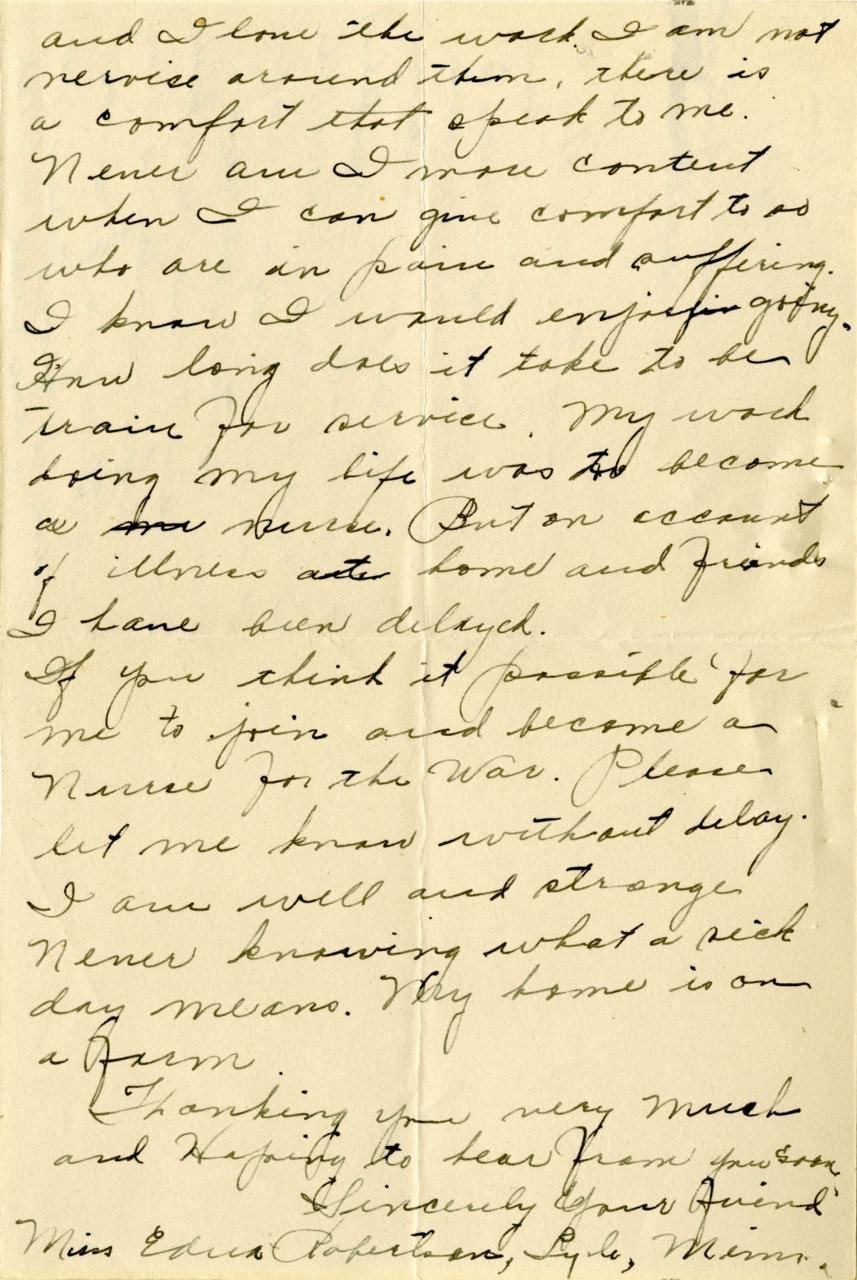 and I love the work. I am not
nervise around them, there is
a comfort that speak to me.
Never am I more content
when I can give comfort to so
who are in pain and suffering.
I know I would enjoy going.
How long does it take to be
train for service. My work
doing my life was to become
a nurse. But on account
of illness at home and friends
I have been delayed.
If you think it possible for
me to join and become a
Nurse for the War. Please
let me know without delay.
I am well and stronge
Never knowing what a sick
day means. My home is on
a farm.
Thanking you very much
and Hoping to hear from you soon
Sincerely Your Friend
Miss Edna Robertson, Lyle, Minn.